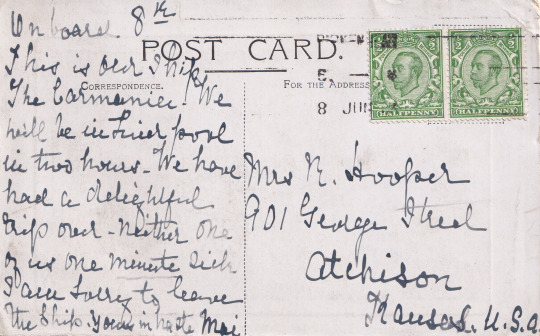 On board. 8th
POST CARD.
This is our Ship
CORRESPONDENCE.
FOR THE ADDRESS
The Carmania. We
will be in Liverpool
in two hours. We have
had a delightful
trip over - neither one
of us one minute sick
I am sorry to leave
the Ship. Yours in haste
8 JUN
HALFPENNY
HALFPENNY
Mrs N. Hooper
901 George Street
Atchison
Kansas. U.S.A.